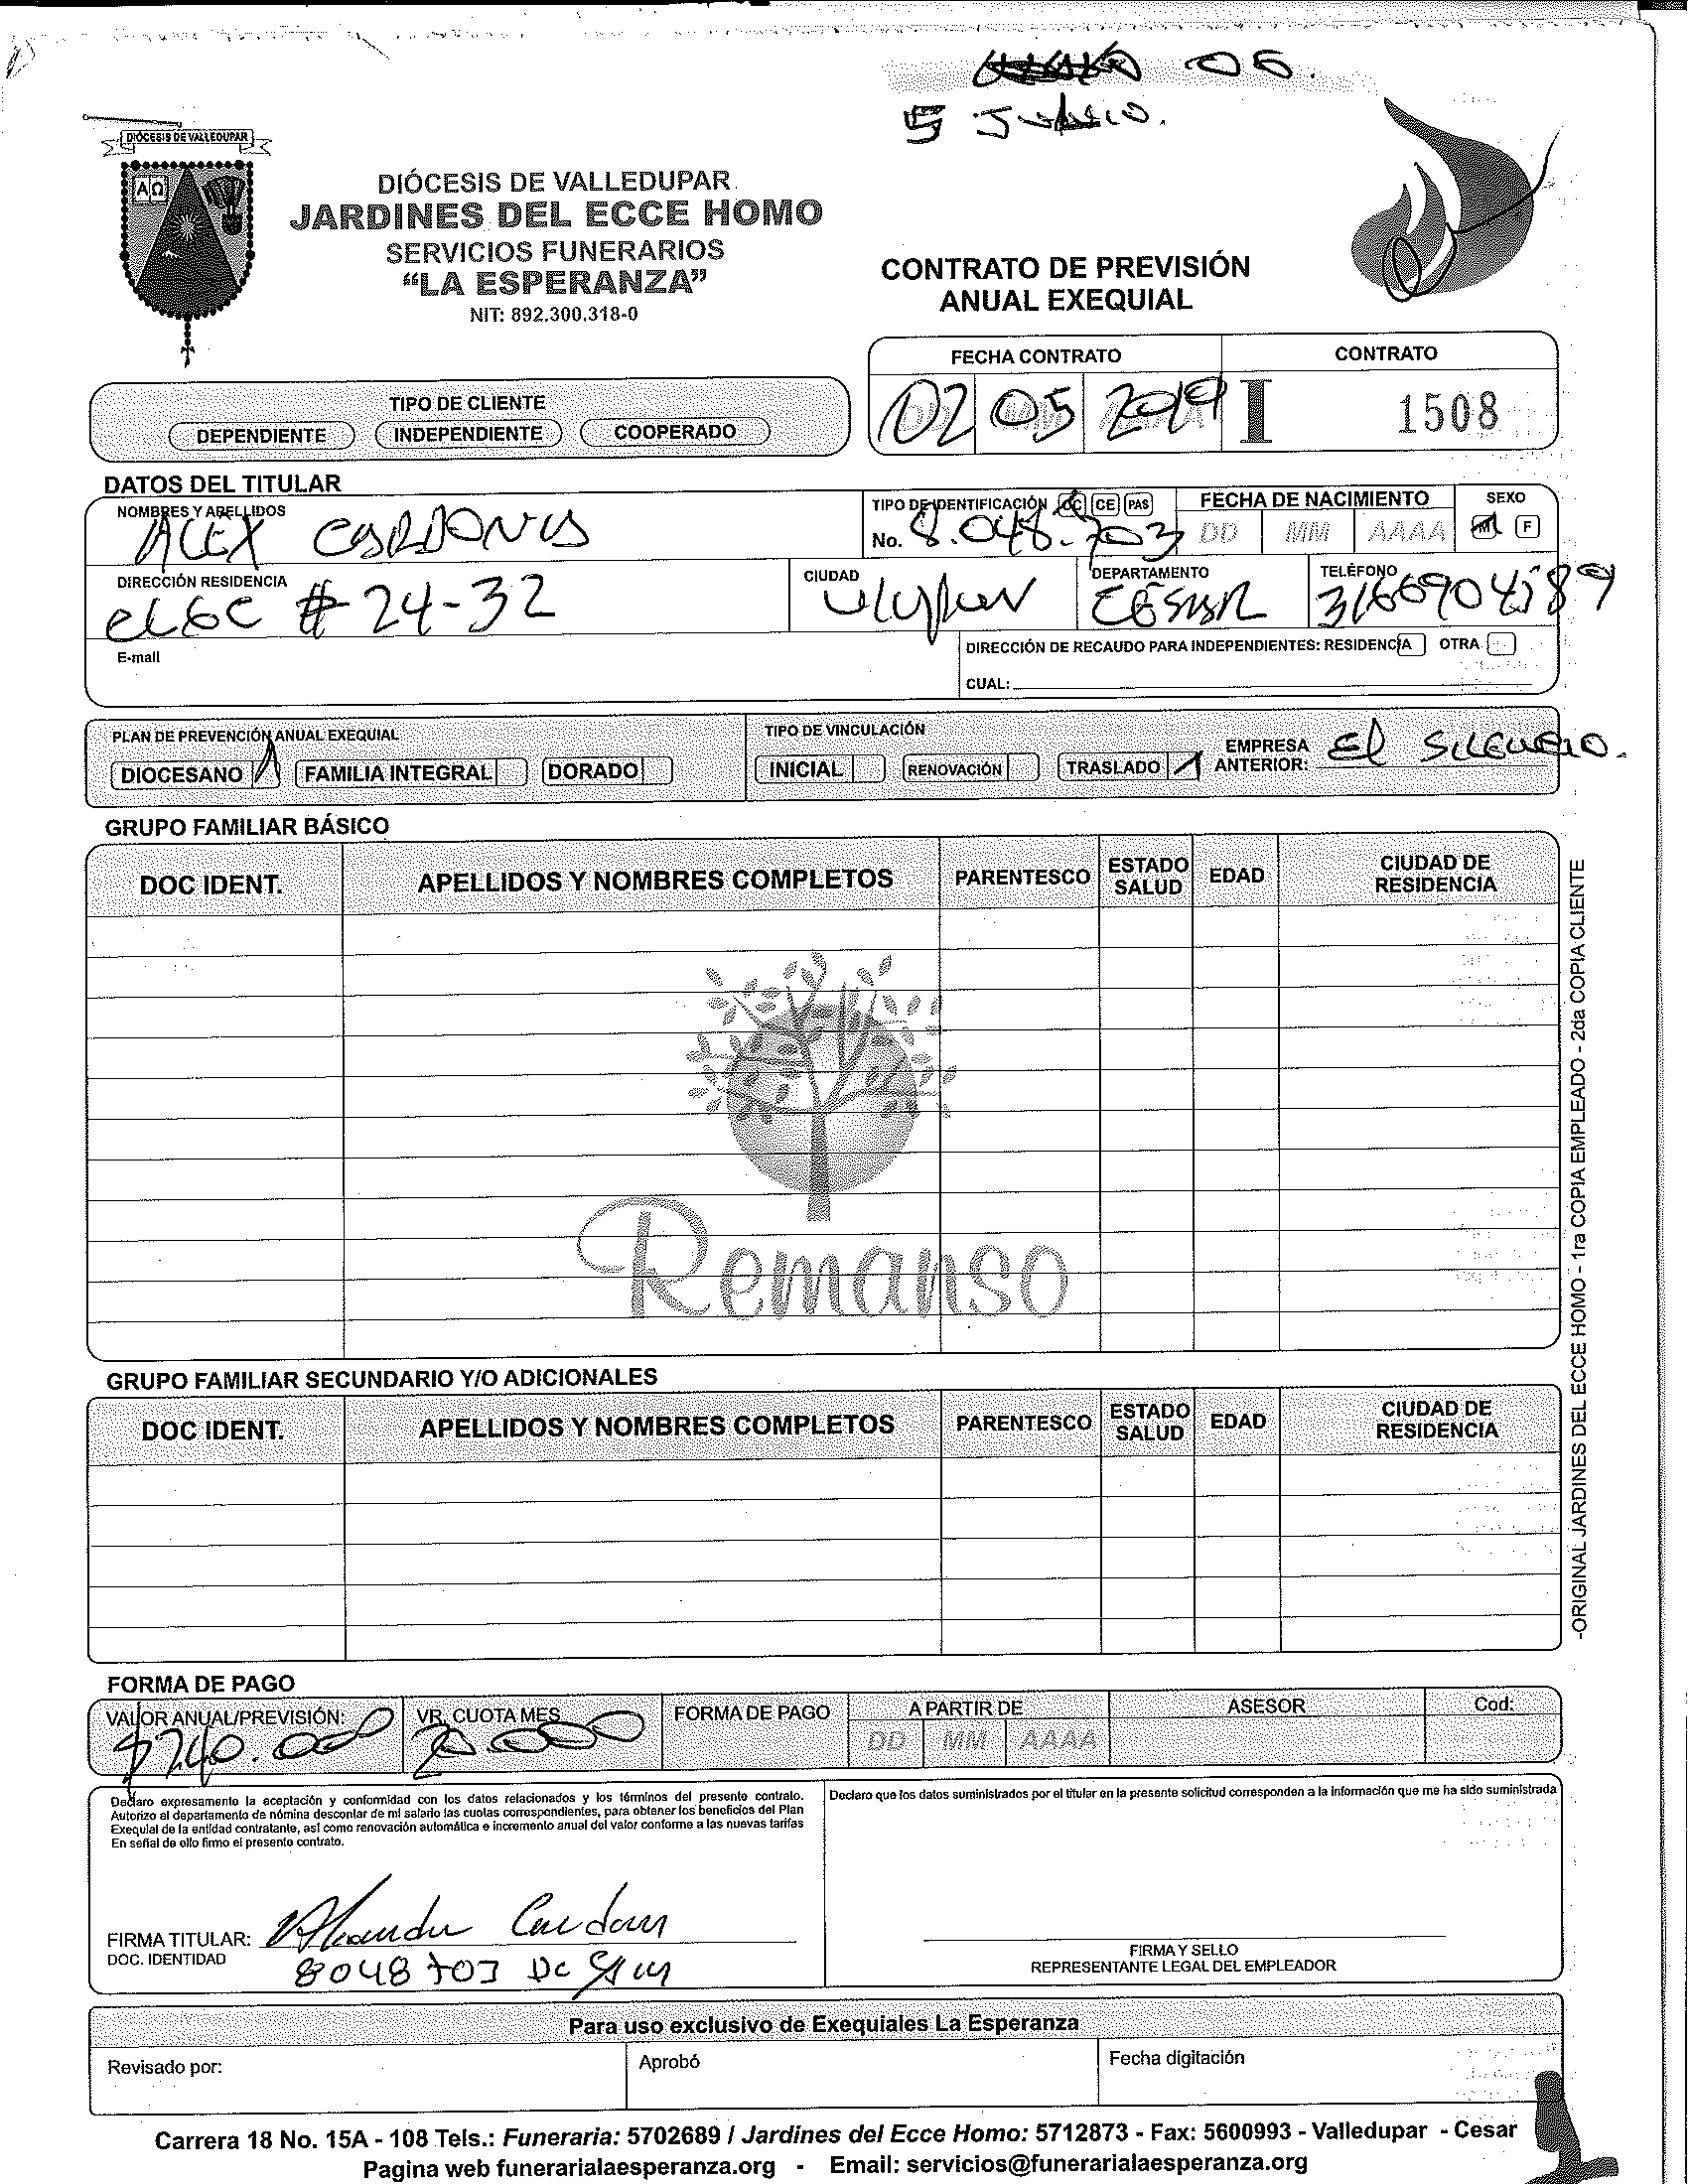 05.
5 Junio.
DIÓCESIS DE VALLEDUPAR
AΩ
DIÓCESIS DE VALLEDUPAR
JARDINES DEL ECCE HOMO
SERVICIOS FUNERARIOS
“LA ESPERANZA”
NIT: 892.300.318-0
CONTRATO DE PREVISIÓN
ANUAL EXEQUIAL
FECHA CONTRATO CONTRATO
02 05 2019 I 1508
TIPO DE CLIENTE
DEPENDIENTE INDEPENDIENTE COOPERADO
DATOS DEL TITULAR
NOMBRES Y APELLIDOS
ALEX CARDONA
TIPO DE IDENTIFICACIÓN CC CE PAS
No. 8.048.703
FECHA DE NACIMIENTO
DD MM AAAA
SEXO
M F
DIRECCIÓN RESIDENCIA
# 24-32
CIUDAD
DEPARTAMENTO
CESAR
TELÉFONO
3166904589
E-mail
DIRECCIÓN DE RECAUDO PARA INDEPENDIENTES: RESIDENCIA OTRA
CUAL:
PLAN DE PREVENCIÓN ANUAL EXEQUIAL
DIOCESANO FAMILIA INTEGRAL DORADO
TIPO DE VINCULACIÓN
INICIAL RENOVACIÓN TRASLADO
EMPRESA ANTERIOR: El Silencio.
GRUPO FAMILIAR BÁSICO
DOC IDENT. APELLIDOS Y NOMBRES COMPLETOS PARENTESCO ESTADO SALUD EDAD CIUDAD DE RESIDENCIA
Remanso
GRUPO FAMILIAR SECUNDARIO Y/O ADICIONALES
DOC IDENT. APELLIDOS Y NOMBRES COMPLETOS PARENTESCO ESTADO SALUD EDAD CIUDAD DE RESIDENCIA
-ORIGINAL JARDINES DEL ECCE HOMO - 1ra COPIA EMPLEADO - 2da COPIA CLIENTE
FORMA DE PAGO
VALOR ANUAL/PREVISIÓN: VR. CUOTA MES FORMA DE PAGO A PARTIR DE ASESOR Cod:
$240.000 20.000 DD MM AAAA
Declaro expresamente la aceptación y conformidad con los datos relacionados y los términos del presente contrato.
Autorizo al departamento de nómina descontar de mi salario las cuotas correspondientes, para obtener los beneficios del Plan
Exequial de la entidad contratante, así como renovación automática e incremento anual del valor conforme a las nuevas tarifas
En señal de ello firmo el presente contrato.
Declaro que los datos suministrados por el titular en la presente solicitud corresponden a la información que me ha sido suministrada
FIRMA TITULAR: Alexander Cardona
DOC. IDENTIDAD 8048703 De
FIRMA Y SELLO
REPRESENTANTE LEGAL DEL EMPLEADOR
Para uso exclusivo de Exequiales La Esperanza
Revisado por: Aprobó Fecha digitación
Carrera 18 No. 15A - 108 Tels.: Funeraria: 5702689 / Jardines del Ecce Homo: 5712873 - Fax: 5600993 - Valledupar - Cesar
Pagina web funerarialaesperanza.org - Email: servicios@funerarialaesperanza.org